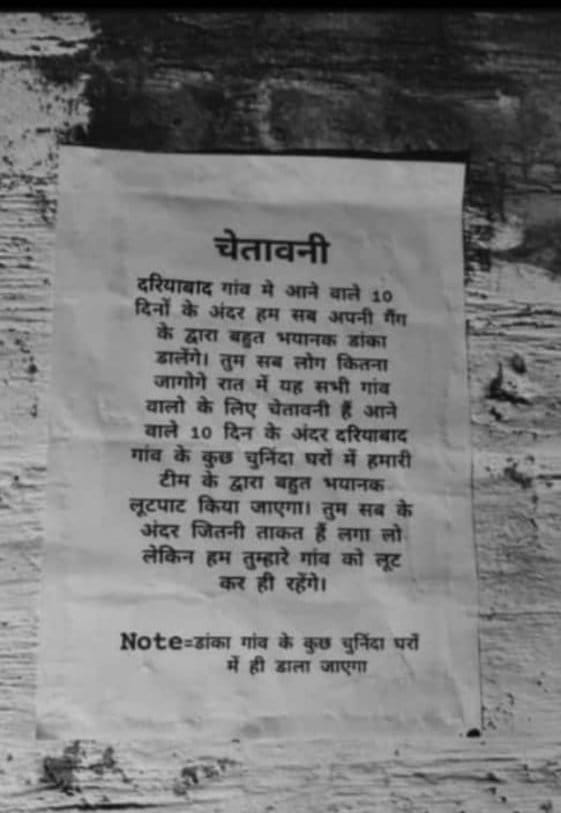 चेतावनी
दरियाबाद गांव मे आने वाले 10
दिनों के अंदर हम सब अपनी गैंग
के द्वारा बहुत भयानक डांका
डालेंगे। तुम सब लोग कितना
जागोगे रात में यह सभी गांव
वालो के लिए चेतावनी हैं आने
वाले 10 दिन के अंदर दरियाबाद
गांव के कुछ चुनिंदा घरों में हमारी
टीम के द्वारा बहुत भयानक
लूटपाट किया जाएगा। तुम सब के
अंदर जितनी ताकत हैं लगा लो
लेकिन हम तुम्हारे गांव को लूट
कर ही रहेंगे।
Note=डांका गांव के कुछ चुनिंदा घरों
में ही डाला जाएगा